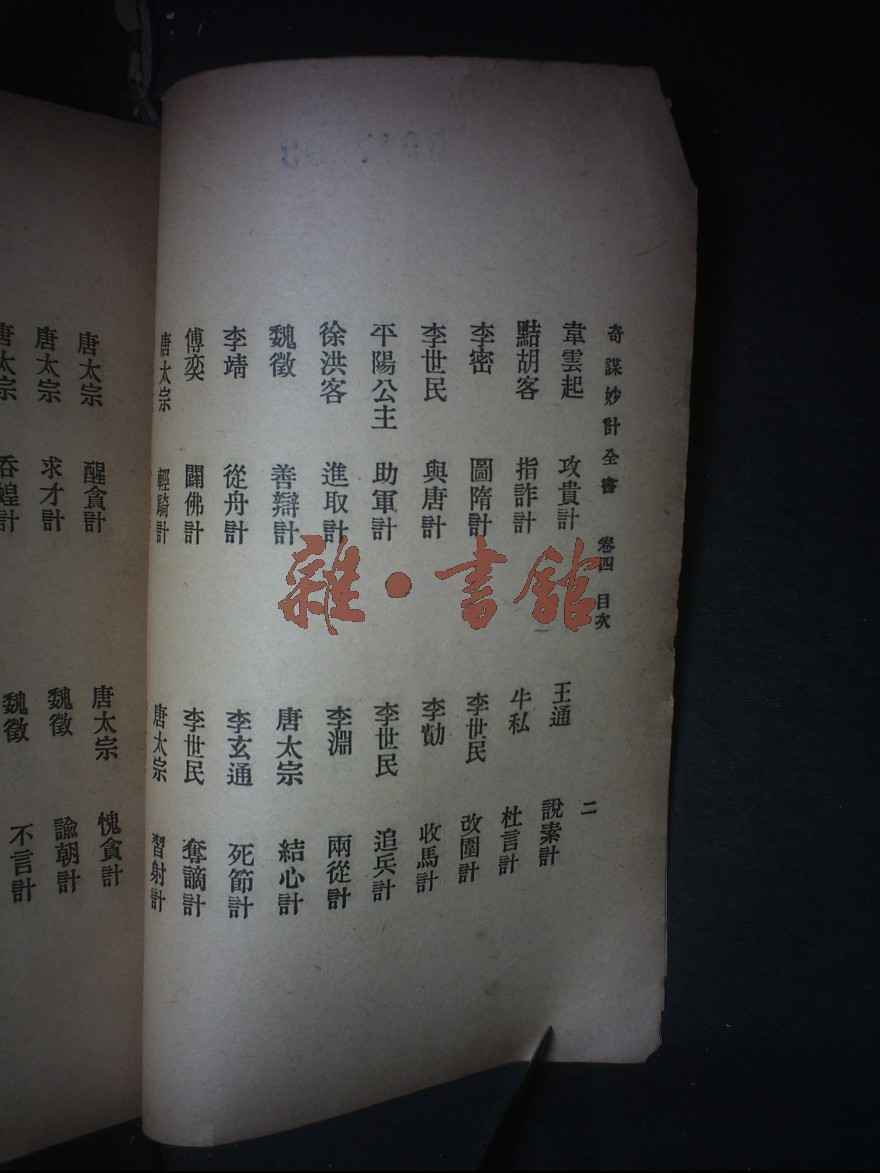 奇謀妙計全書 卷四 目次 二
韋雲起 攻貴計 王通 說素計
黠胡客 指詐計 牛私 杜言計
李密 圖隋計 李世民 改圍計
李世民 與唐計 李勣 收馬計
平陽公主 助軍計 李世民 追兵計
徐洪客 進取計 李淵 兩從計
魏徵 善辯計 唐太宗 結心計
李靖 從舟計 李玄通 死節計
傅奕 闢佛計 李世民 奪謫計
唐太宗 輕騎計 唐太宗 習射計
唐太宗 醒貪計 唐太宗 愧貪計
唐太宗 求才計 魏徵 諭朝計
唐太宗 吞蝗計 魏徵 不言計
雜·書館